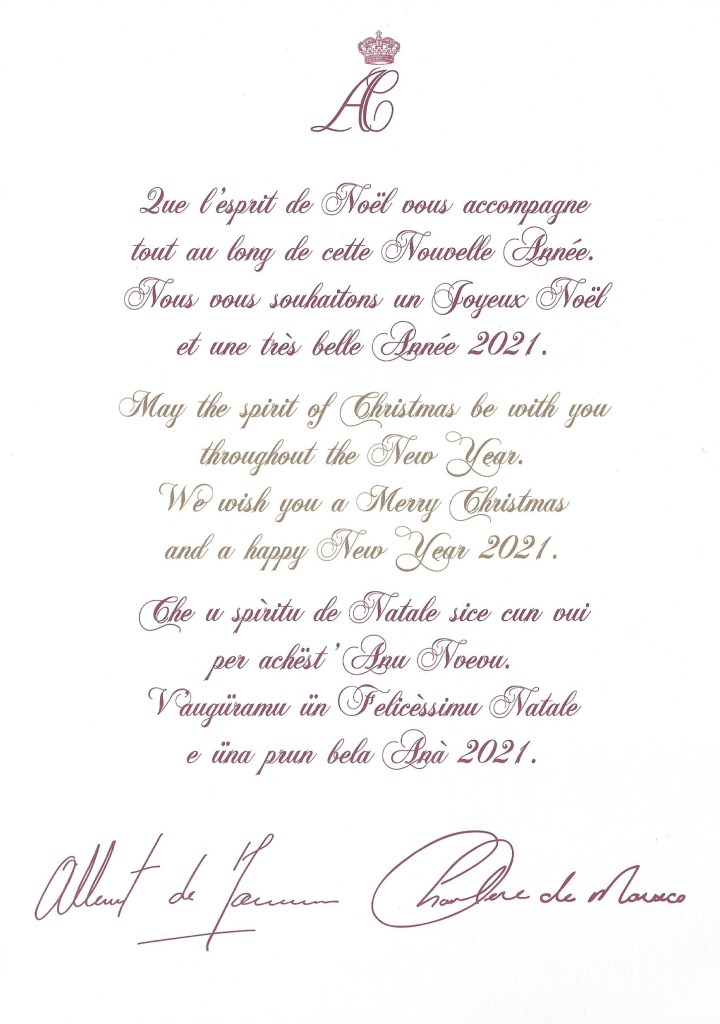 AC
Que l'esprit de Noël vous accompagne
tout au long de cette Nouvelle Année.
Nous vous souhaitons un Joyeux Noël
et une très belle Année 2021.
May the spirit of Christmas be with you
throughout the New Year.
We wish you a Merry Christmas
and a happy New Year 2021.
Che u spìritu de Natale sice cun vui
per achëst' Anu Noevu.
V'augüramu ün Felicèssimu Natale
e üna prun bela Anà 2021.
Albert de Monaco Charlène de Monaco